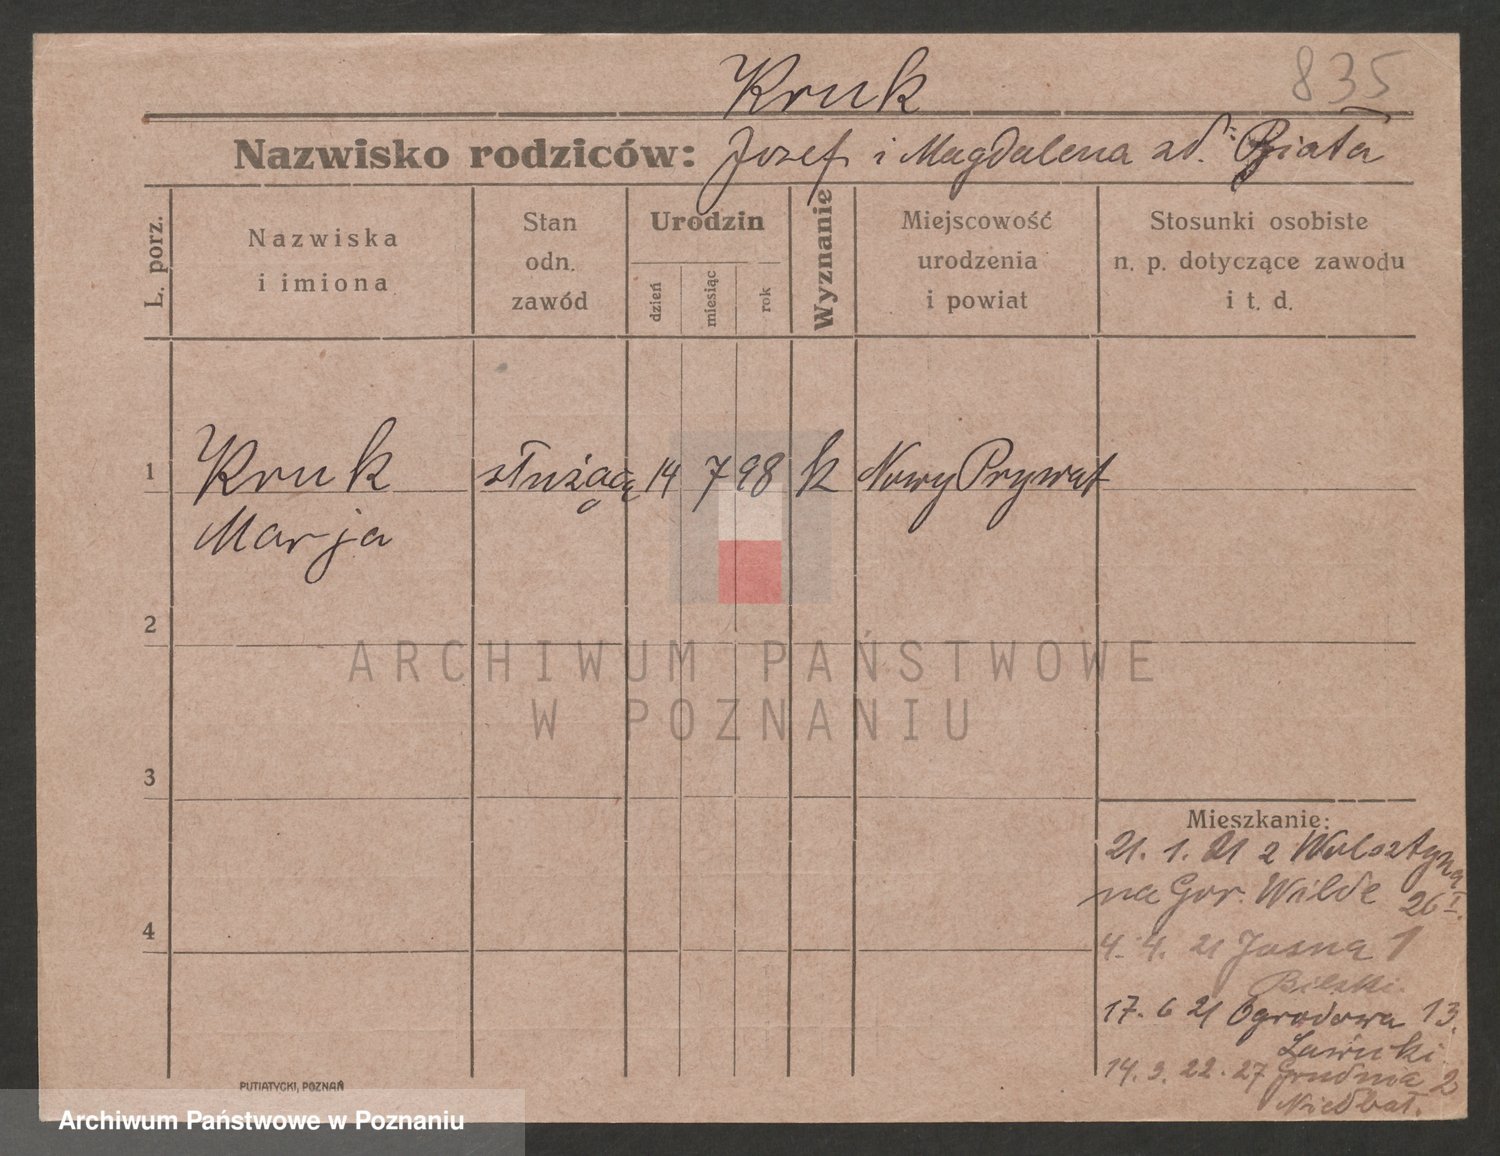 835
Kruk
Nazwisko rodziców: Jozef i Magdalena zd. Biała
L. porz.
Nazwiska
i imiona
Stan
odn.
zawód
Urodzin
dzień
miesiąc
rok
Wyznanie
Miejscowość
urodzenia
i powiat
Stosunki osobiste
n. p. dotyczące zawodu
i t. d.
1 Kruk służącą 14 7 98 k Nowy Prywat
Marja
2
ARCHIWUM PAŃSTWOWE
W POZNANIU
3
Mieszkanie:
21. 1. 21 z Wolsztyna
na Gór. Wilde 26 I.
4
4. 4. 21 Jasna 1
Bilski.
17. 6 21 Ogrodowa 13.
14. 3. 22. 27 Grudnia 2
PUTIATYCKI, POZNAŃ
Archiwum Państwowe w Poznaniu